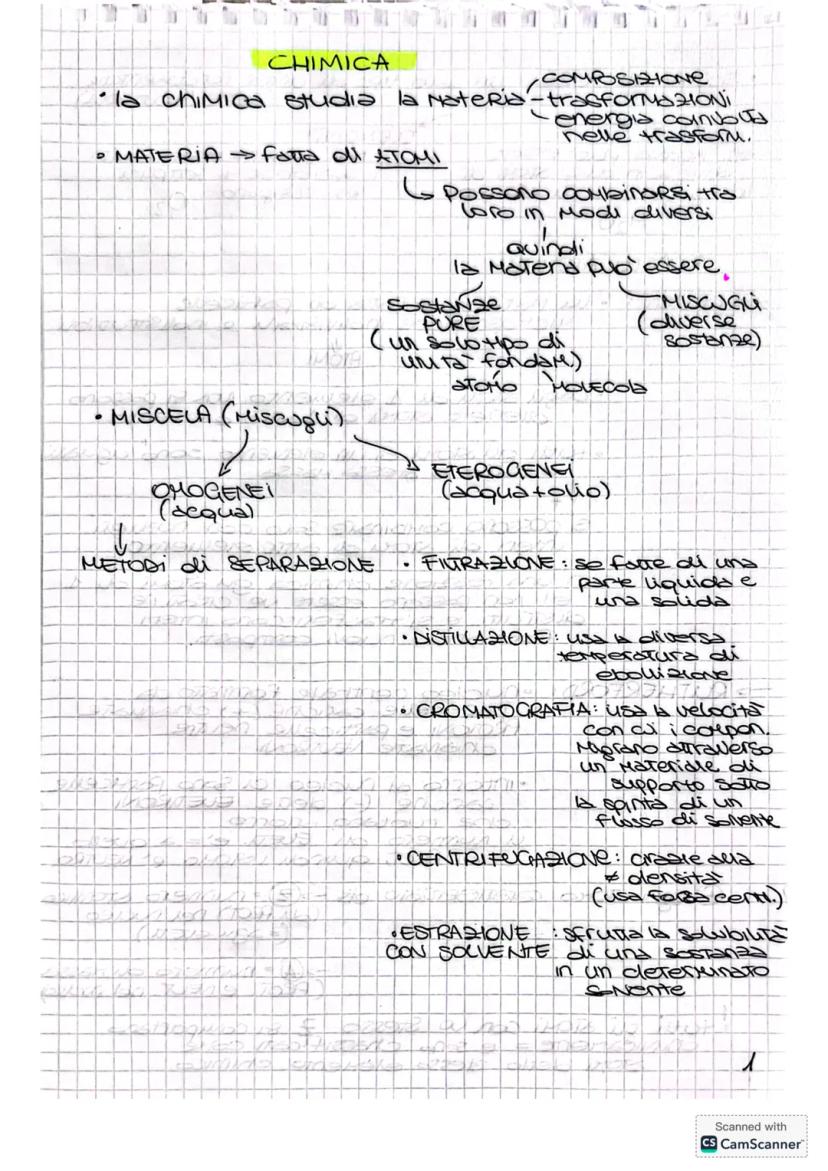 CHIMICA
• la CHIMICA studia la materia - COMPOSIZIONE
- trasformazioni
- energia coinvolta
nelle trasform.
• MATERIA → fatta di ATOMI
↳ Possono combinarsi tra
loro in modi diversi
quindi
la materia può essere
SOSTANZE
PURE
(un solo tipo di
unità fondam.)
atomo molecola
MISCUGLI
(diverse
sostanze)
• MISCELA (Miscugli)
OMOGENEI
(acqua)
ETEROGENEI
(acqua+olio)
METODI di SEPARAZIONE
• FILTRAZIONE: se fatte di una
parte liquida e
una solida
• DISTILLAZIONE: usa la diversa
temperatura di
ebollizione
• CROMATOGRAFIA: usa la velocità
con cui i compon.
migrano attraverso
un materiale di
supporto sotto
la spinta di un
flusso di solvente
• CENTRIFUGAZIONE: grazie alla
≠ densità
(usa forza centr.)
• ESTRAZIONE : sfrutta la solubilità
CON SOLVENTE di una sostanza
in un determinato
solvente
1
Scanned with
CS CamScanner